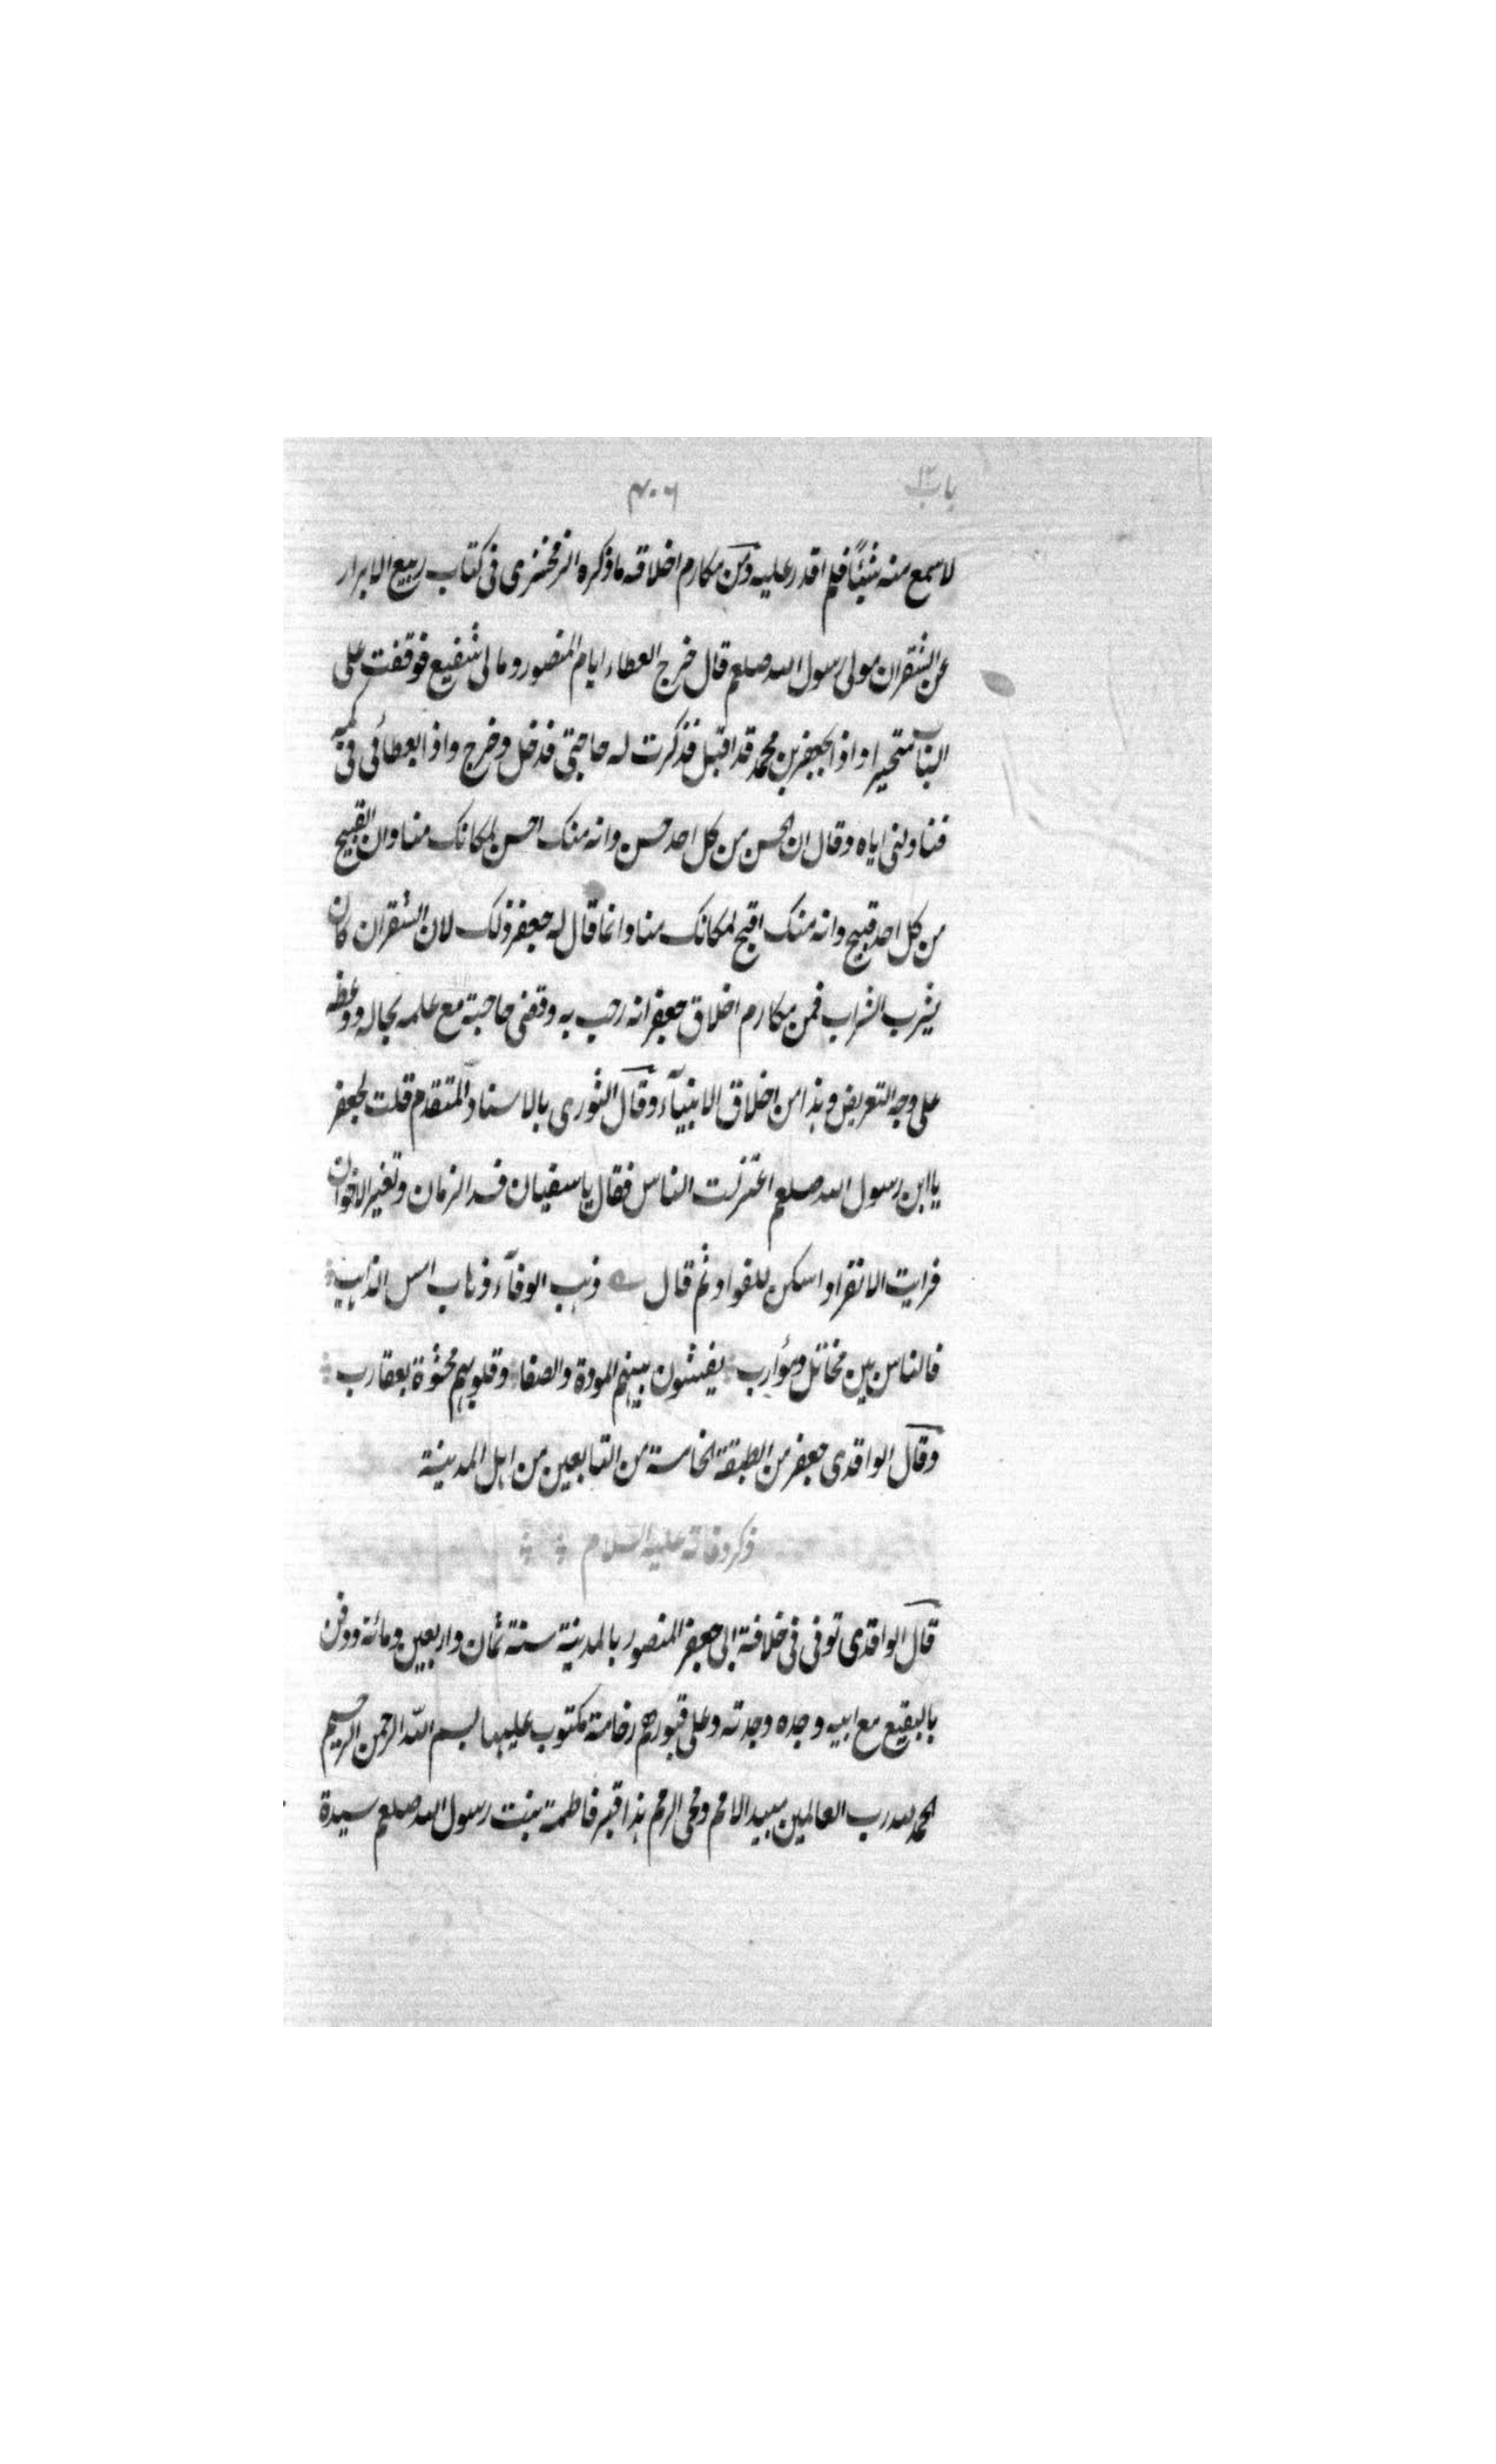 باب ١٢
٤٠٦
لاسمع منه شيئًا فلم اقدر عليه ومن مكارم اخلاقه ما ذكره الزمخشرى فى كتاب ربيع الابرار
عن الشقران مولى رسول الله صلعم قال خرج العطاء ايام المنصور وما لى شفيع فوقفت على
الباب متحيرا واذا بجعفر بن محمد قد اقبل فذكرت له حاجتى فدخل وخرج واذا بعطائى فى كمه
فناولنى اياه وقال ان الحسن من كل احد حسن وانه منك احسن لمكانك منا وان القبيح
من كل احد قبيح وانه منك اقبح لمكانك منا وانما قال له جعفر ذلك لان الشقران كان
يشرب الشراب فمن مكارم اخلاق جعفر انه رحب به وقضى حاجته مع علمه بحاله ووعظه
على وجه التعريض وهذا من اخلاق الانبيآء وقال الثورى بالاسناد المتقدم قلت لجعفر
يا ابن رسول الله صلعم اعتزلت الناس فقال يا سفيان فسد الزمان وتغير الاخوان
فرايت الانفراد اسكن للفواد ثم قال ذهب الوفآء ذهاب امس الذاهب
فالناس بين مخاتل ومؤارب يفشون بينهم المودة والصفا وقلوبهم محشوة بعقارب
وقال الواقدى جعفر من الطبقة الخامسة من التابعين من اهل المدينة
ذكر وفاته عليه السلام
قال الواقدى توفى فى خلافة ابى جعفر المنصور بالمدينة سنة ثمان واربعين ومائة ودفن
بالبقيع مع ابيه وجده وجدته وعلى قبورهم رخامة مكتوب عليها بسم الله الرحمن الرحيم
الحمد لله رب العالمين مبيد الامم ومحى الرمم هذا قبر فاطمة بنت رسول الله صلعم سيدة